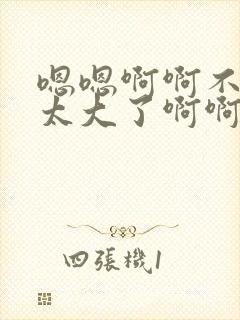 嗯嗯啊啊不
太大了啊啊
四張機1